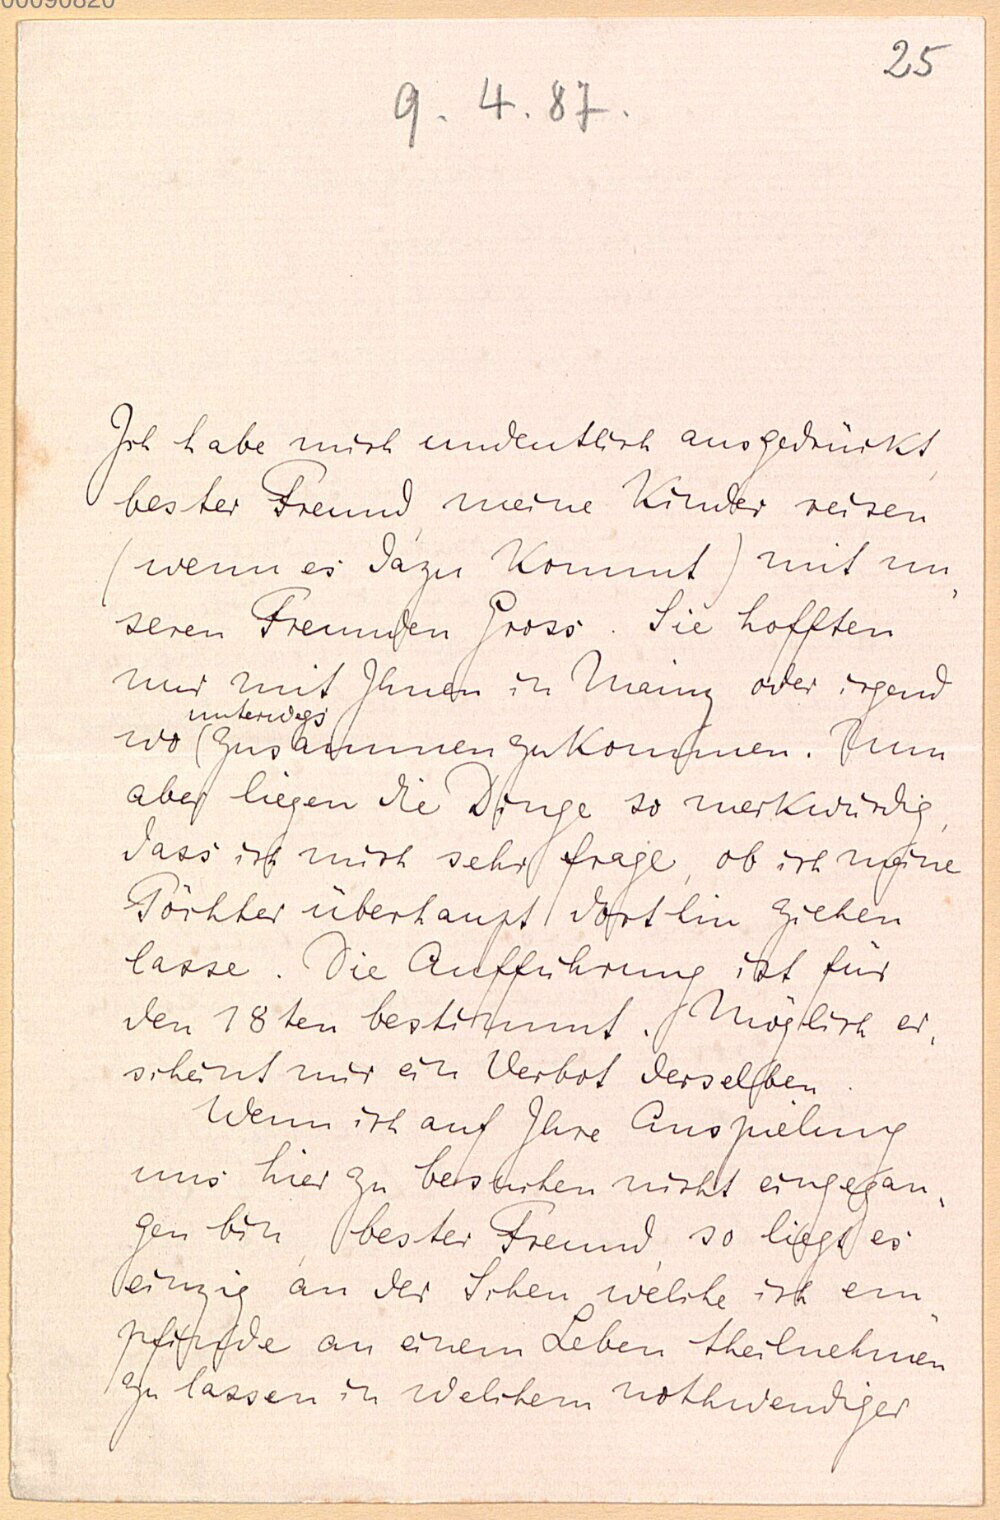 00090820
25
9. 4. 87.
Ich habe mich undeutlich ausgedrückt,
bester Freund, meine Kinder reisen
(wenn es dazu kommt) mit un„
seren Freunden Gross. Sie hofften
nur mit Ihnen in Mainz oder irgend
unterwegs
wo (zusammen zu kommen. Nun
aber liegen die Dinge so merkwürdig,
dass ich mich sehr frage, ob ich meine
Töchter überhaupt dorthin ziehen
lasse. Die Aufführung ist für
den 18ten bestimmt. Möglich er„
scheint mir ein Verbot derselben.
Wenn ich auf Ihre Anspielung
uns hier zu besuchen nicht eingegan„
gen bin, bester Freund, so liegt es
einzig an der Scheu welche ich em„
pfinde an einem Leben theilnehmen
zu lassen in welchem nothwendiger